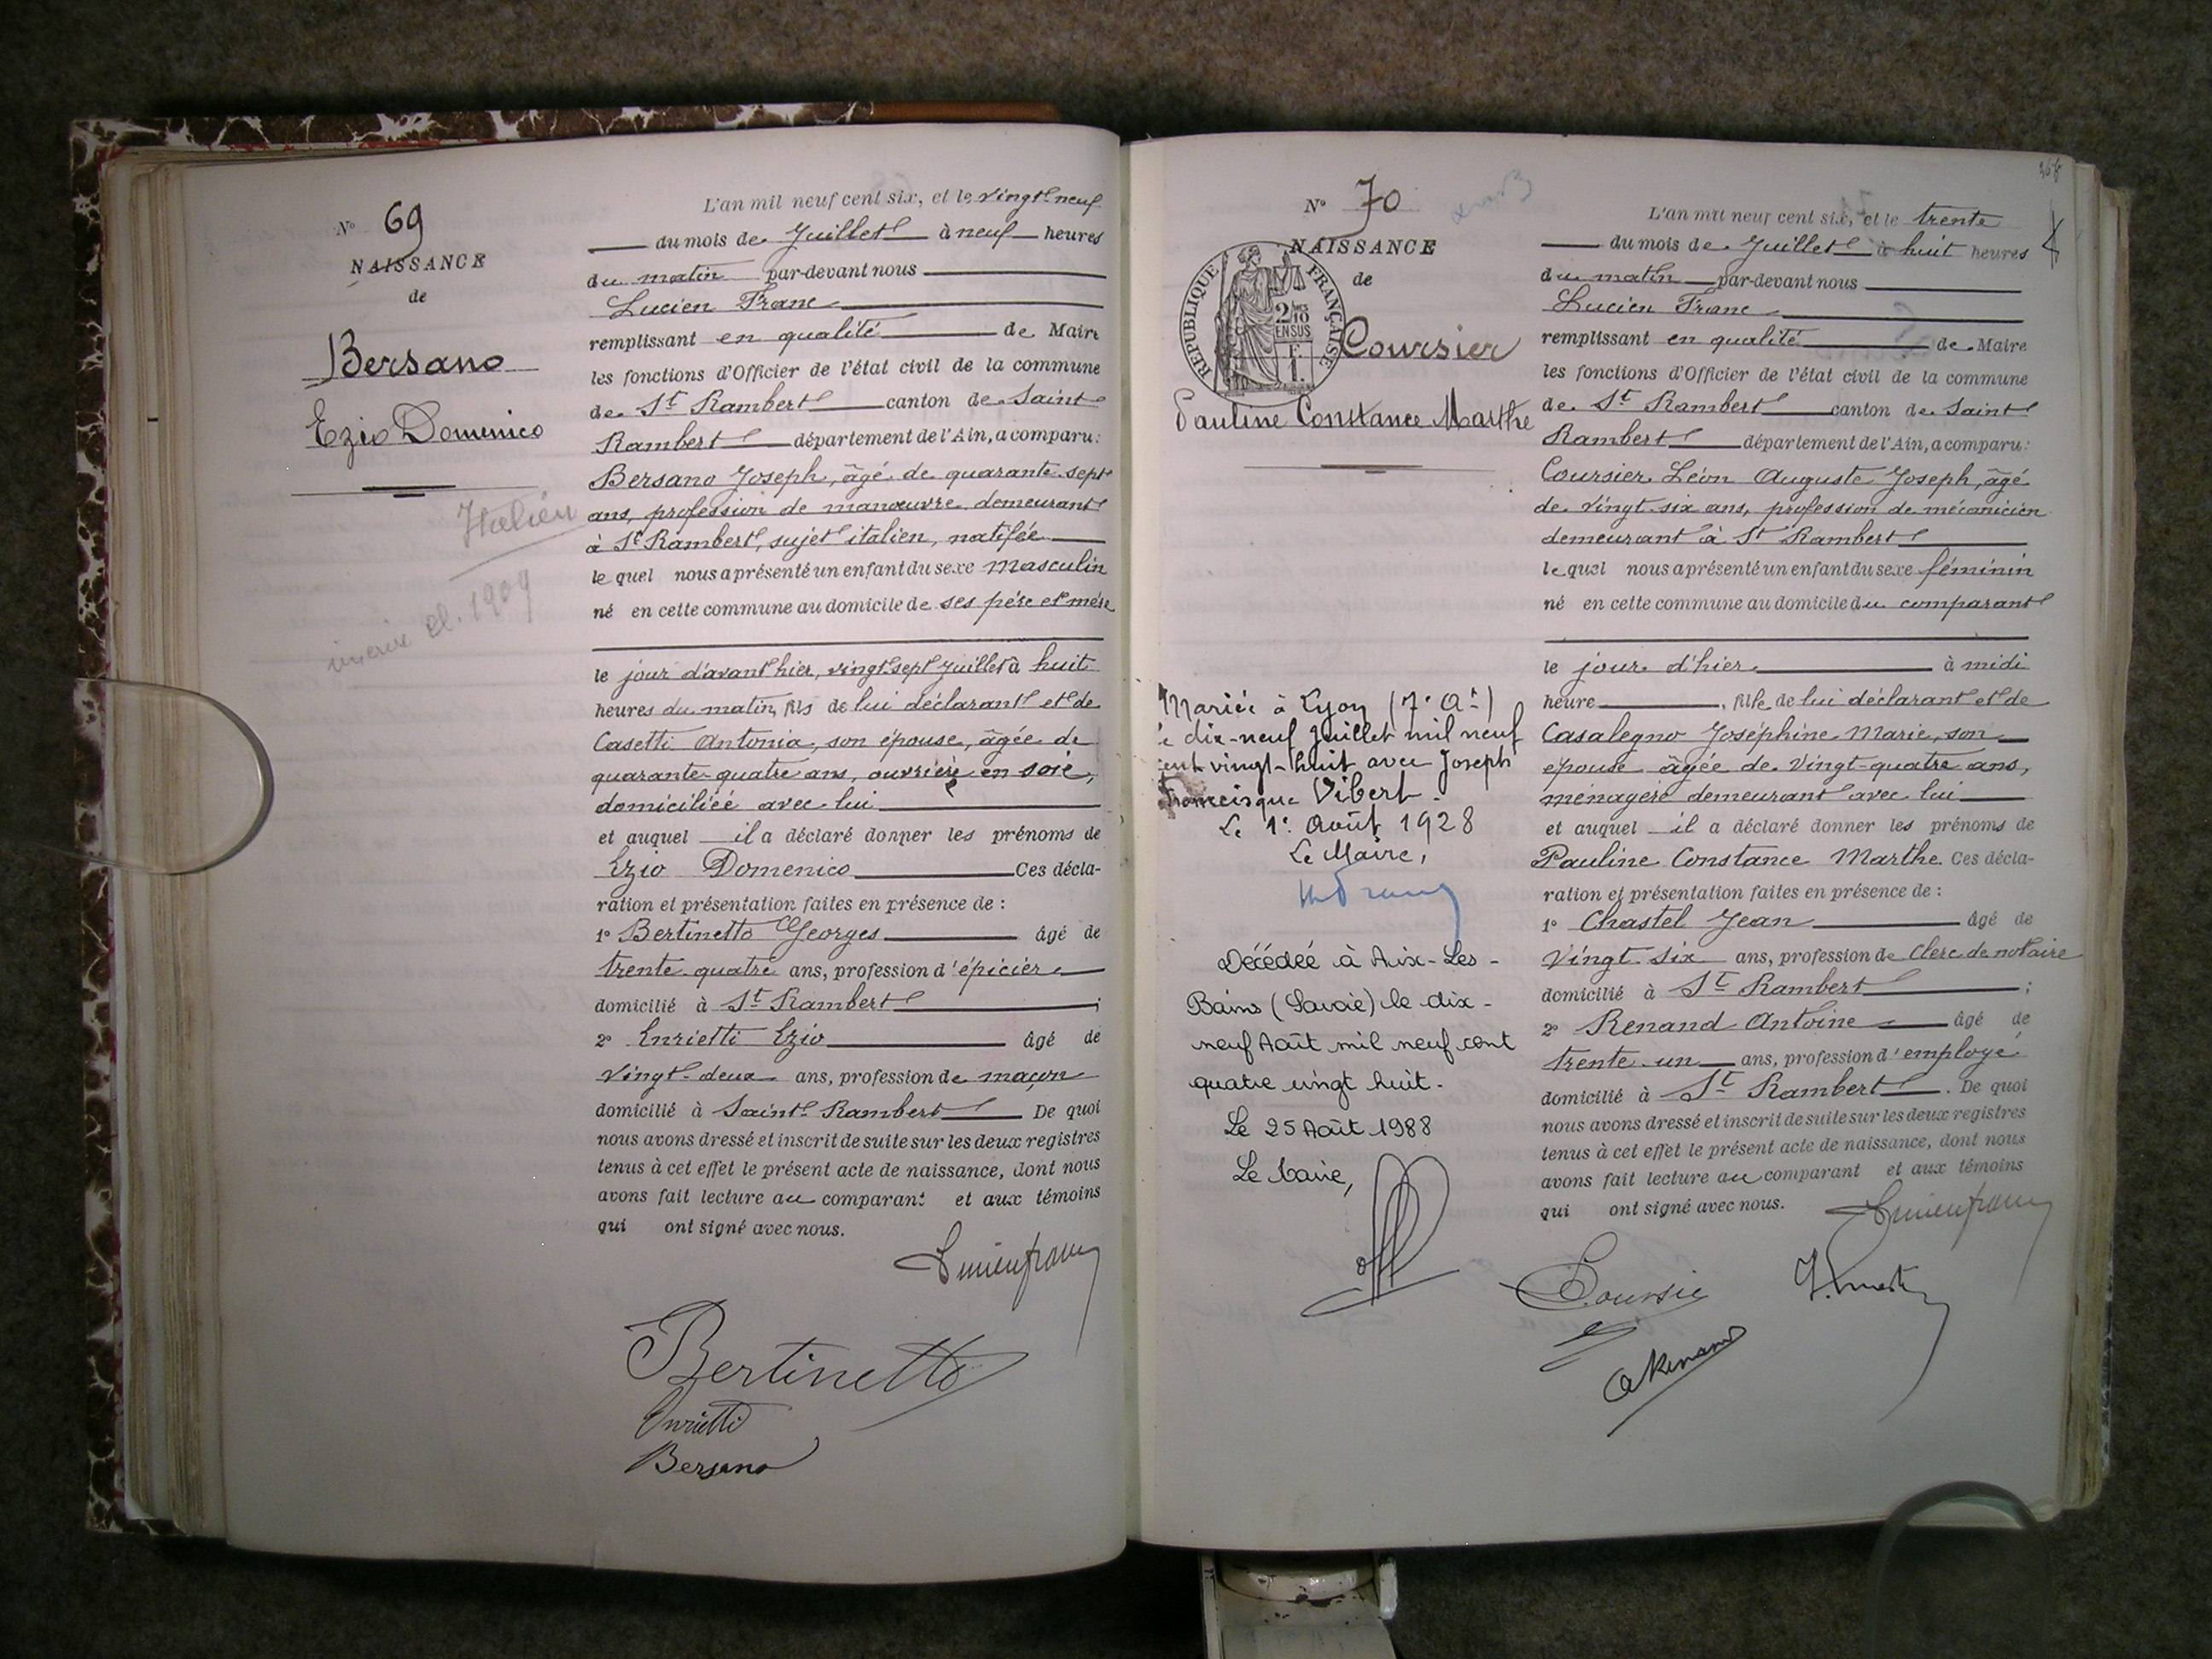 N° 69
NAISSANCE
de
Bersano
Ezio Domenico
Italien
cl. 1909
L'an mil neuf cent six, et le vingt neuf
du mois de Juillet à neuf heures
du matin par-devant nous
Lucien Franc
remplissant en qualité de Maire
les fonctions d'Officier de l'état civil de la commune
de St Rambert canton de Saint
Rambert département de l'Ain, a comparu:
Bersano Joseph, âgé de quarante-sept
ans, profession de manœuvre demeurant
à St Rambert, sujet italien,
le quel nous a présenté un enfant du sexe Masculin
né en cette commune au domicile de ses père et mère
le jour d'avant hier, vingt-sept Juillet à huit
heures du matin, fils de lui déclarant et de
Casetti Antonia, son épouse, âgée de
quarante-quatre ans, ouvrière en soie,
domiciliée avec lui
et auquel il a déclaré donner les prénoms de
Ezio Domenico Ces décla-
ration et présentation faites en présence de :
1° Bertinetto Georges âgé de
trente quatre ans, profession d'épicier
domicilié à St Rambert ;
2° Enrietti Ezio âgé de
vingt-deux ans, profession de maçon
domicilié à Saint Rambert De quoi
nous avons dressé et inscrit de suite sur les deux registres
tenus à cet effet le présent acte de naissance, dont nous
avons fait lecture au comparant et aux témoins
qui ont signé avec nous.
Lucien franc
Bertinetto
Enrietti
Bersano
N° 70
NAISSANCE
de
REPUBLIQUE FRANÇAISE
2/10
EN SUS
Coursier
Pauline Constance Marthe
Mariée à Lyon (7e At)
le dix-neuf Juillet mil neuf
cent vingt-huit avec Joseph
Francisque Vibert.
Le 1er Août 1928
Le Maire,
Décédée à Aix-Les-
Bains (Savoie) le dix-
neuf Août mil neuf cent
quatre vingt huit.
Le 25 Août 1988
Le Maire,
L'an mil neuf cent six, et le trente
du mois de Juillet à huit heures
du matin par-devant nous
Lucien Franc
remplissant en qualité de Maire
les fonctions d'Officier de l'état civil de la commune
de St Rambert canton de Saint
Rambert département de l'Ain, a comparu:
Coursier Léon Auguste Joseph, âgé
de vingt-six ans, profession de mécanicien
demeurant à St Rambert
le quel nous a présenté un enfant du sexe féminin
né en cette commune au domicile du comparant
le jour d'hier à midi
heure , fille de lui déclarant et de
Casalegno Joséphine Marie, son
épouse âgée de vingt-quatre ans,
ménagère demeurant avec lui
et auquel il a déclaré donner les prénoms de
Pauline Constance Marthe. Ces décla-
ration et présentation faites en présence de :
1° Chastel Jean âgé de
vingt six ans, profession de Clerc de notaire
domicilié à St Rambert ;
2° Renand Antoine âgé de
trente un ans, profession d'employé
domicilié à St Rambert . De quoi
nous avons dressé et inscrit de suite sur les deux registres
tenus à cet effet le présent acte de naissance, dont nous
avons fait lecture au comparant et aux témoins
qui ont signé avec nous.
Lucien franc
Coursier
A Renand